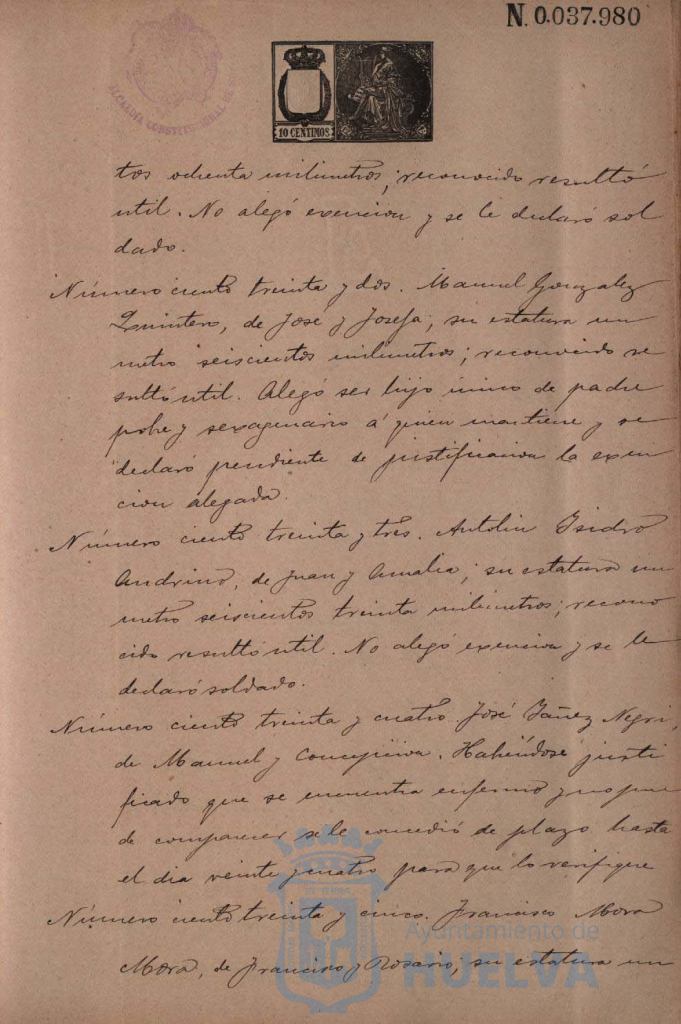 N. 0.037.980
ALCALDÍA CONSTITUCIONAL DE
10 CENTIMOS
tos ochenta milimetros; reconocido resultó
util. No alegó exencion y se le declaró sol
dado.
Número ciento treinta y dos. Manuel Gonzalez
Quintero, de José y Josefa; su estatura un
metro seiscientos milimetros; reconocido re
sultó util. Alegó ser hijo único de padre
pobre y sexagenario á quien mantiene y se
declaró pendiente de justificacion la exen
cion alegada.
Número ciento treinta y tres. Antolin Isidro
Andrino, de Juan y Amalia; su estatura un
metro seiscientos treinta milimetros; recono
cido resultó util. No alegó exencion y se le
declaró soldado.
Número ciento treinta y cuatro. José Yáñez Negri,
de Manuel y Concepcion. Habiéndose justi
ficado que se encuentra enfermo y no pue
de comparecer se le concedió de plazo hasta
el dia veinte y cuatro para que lo verifique
Número ciento treinta y cinco. Francisco Mora
Mora, de Francisco y Rosario; su estatura un
Ayuntamiento de
HUELVA